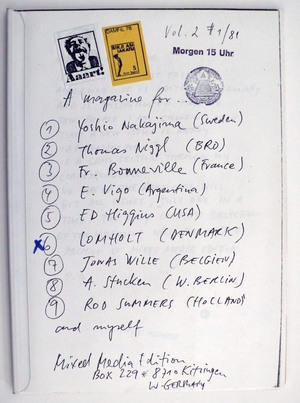 Aaart!
DANFIL 78
Vol. 2 #1/81
Morgen 15 Uhr
A magazine for...
1 Yoshio Nakajima (Sweden)
2 Thomas Niggl (BRD)
3 Fr. Bonneville (France)
4 E. Vigo (Argentina)
5 ED Higgins (USA)
x6 LOMHOLT (DENMARK)
7 JONAS WILLE (BELGIEN)
8 A. Stucken (W. BERLIN)
9 ROD SUMMERS (HOLLAND)
and myself
Mixed Media Edition
BOX 229 * 8710 Kitzingen
W. GERMANY